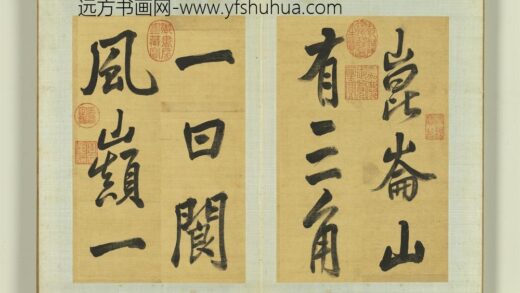 远方书画网-www.yfshuhua.com
崑崙山
有三角
一曰閬
風巔一